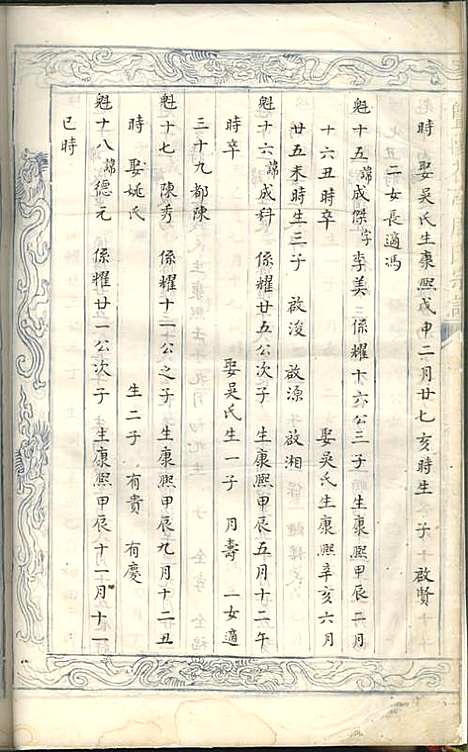 時 娶吳氏生康熙戊申二月廿七亥時生 子 啟賢
二女長適馮
魁十五諱成傑字李美 係耀十六公三子 生康熙甲辰 月
十六丑時卒 娶吳氏生康熙辛亥六月
廿五未時生三子 啟浚 啟源 啟湘
魁十六諱成科 係耀廿五公次子 生康熙甲辰五月十二午
時卒 娶吳氏生一子 月壽 一女適
三十九都陳
魁十七 陳秀 係耀十二公之子 生康熙甲辰九月十二丑
時 娶姚氏 生二子 有貴 有慶
魁十八諱德元 係耀廿一公次子 生康熙甲辰十一月十一
巳時